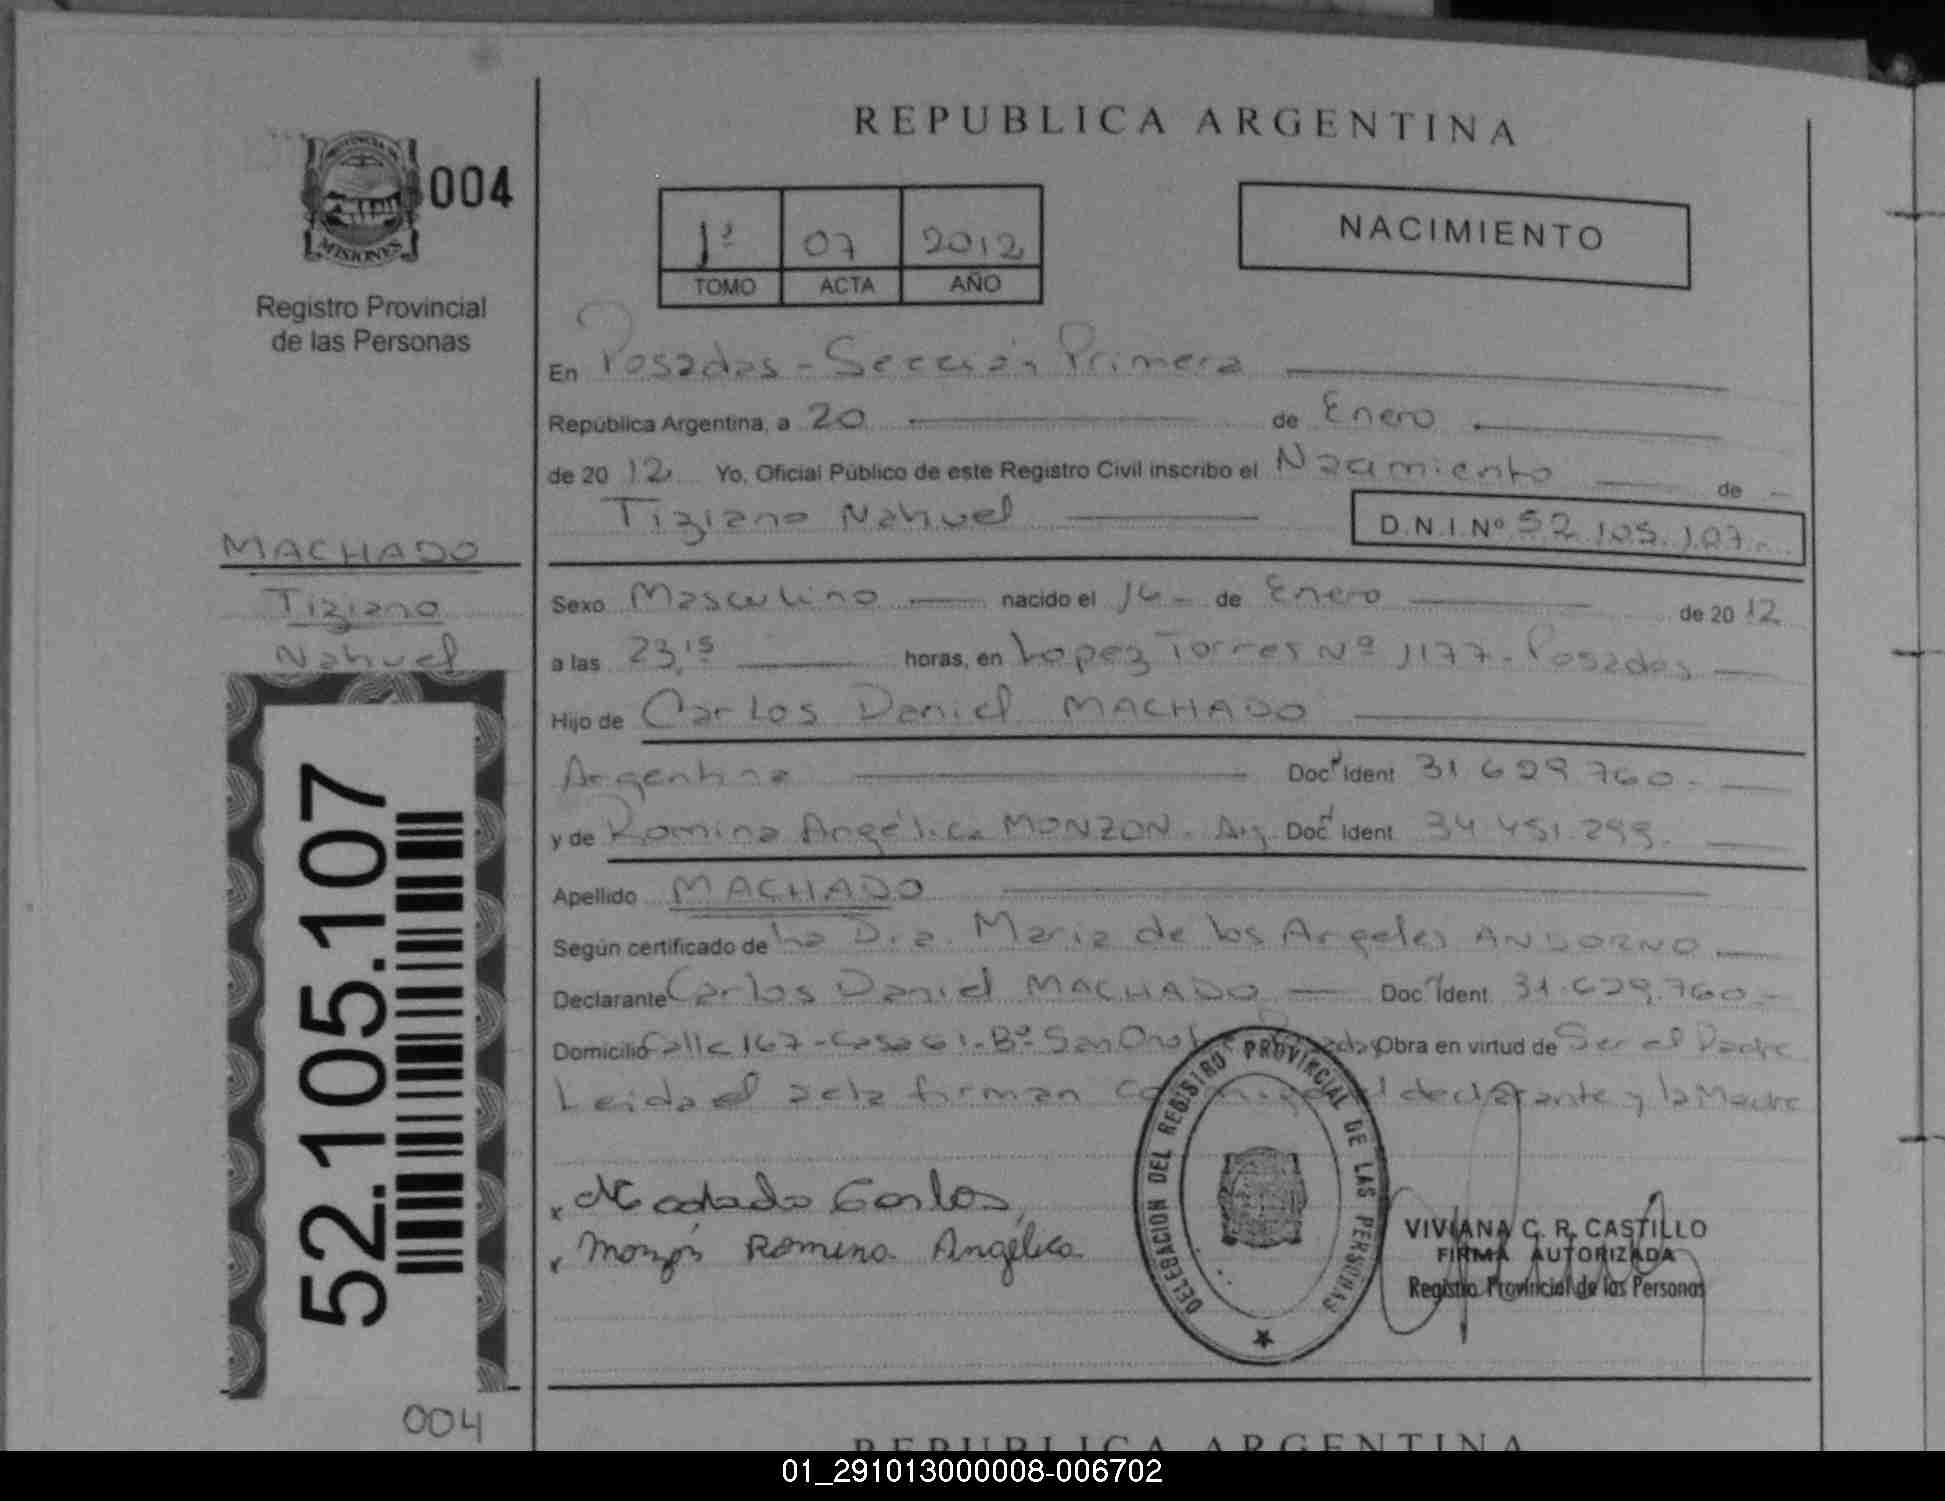 REPUBLICA ARGENTINA
004
MISIONES
Registro Provincial
de las Personas
1º 07 2012
TOMO ACTA AÑO
NACIMIENTO
En Posadas - Sección Primera
República Argentina, a 20 de Enero
de 2012 Yo, Oficial Público de este Registro Civil inscribo el Nacimiento de
Tiziano Nahuel
D.N.I. Nº 52.105.107
MACHADO
Tiziano
Nahuel
52.105.107
004
Sexo Masculino nacido el de Enero de 2012
a las 23,15 horas, en Lopez Torres Nº 1177 - Posadas
Hijo de Carlos Daniel MACHADO
Argentina Doc Ident 31.629.760
y de Romina Angélica MONZON. Arg. Doc Ident 34.451.299.
Apellido MACHADO
Según certificado de La Dra. Maria de los Angeles ANDORNO
Declarante Carlos Daniel MACHADO Doc Ident 31.629.760
Domicilio Calle 167 - Casa 61 - Bº San Obra en virtud de Ser el Padre
Leida el acta firman declarante y la Madre
x Machado Carlos
x Monzón Romina Angélica
DELEGACION DEL REGISTRO PROVINCIAL DE LAS PERSONAS
VIVIANA C. R. CASTILLO
FIRMA AUTORIZADA
Registro Provincial de las Personas
REPUBLICA ARGENTINA
01_291013000008-006702